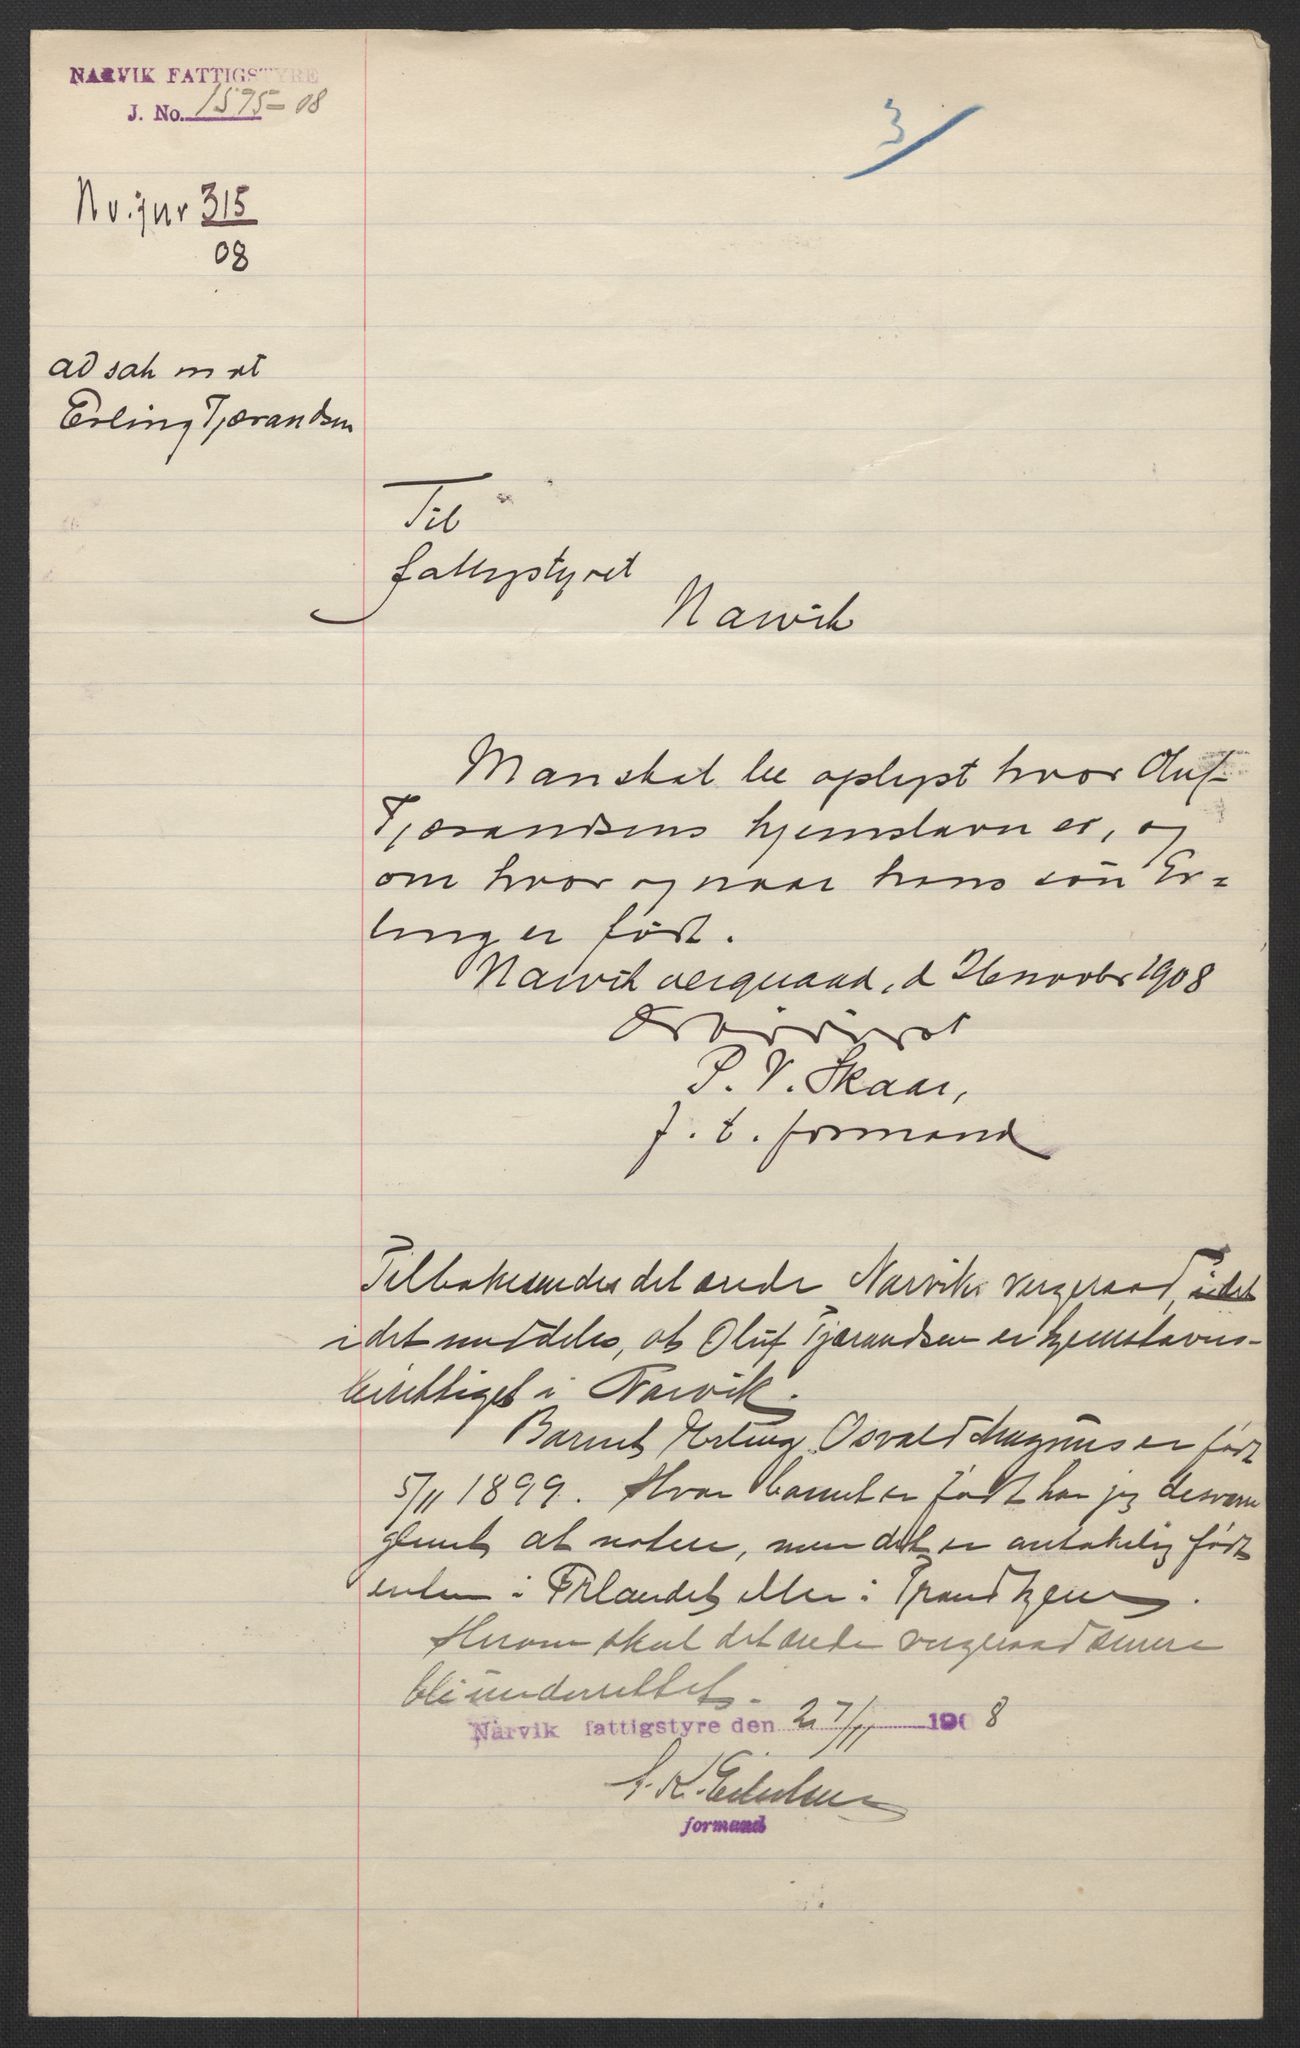 NARVIK FATTIGSTYRE
J. No. 1575-08
3
Nv. jnr 315
08
ad sak m ot
Erling Tjærandsen
Til
fattigstyret
Narvik
Man skal be oplyst hvor Oluf
Tjærandsens hjemstavn er, og
om hvor og naar hans søn Er=
ling er født.
Narvik vergeraad, d 26 novbr 1908
Ærbødigst
P. V. Skaar,
f. t. formand
Tilbakesendes det ærede Narviks vergeraad, idet
idet meddeles, at Oluf Tjærandsen er hjemstavns-
berettiget i Narvik.
Barnet Erling Osvald Magnus er født
5/11 1899. Hvor barnet er født har jeg desværre
glemt at notere, men det er antakelig født
enten i Frlandet eller i Trondhjem.
Herom skal det ærede vergeraad senere
bli underrettet.
Narvik fattigstyre den 27/11 1908
formand